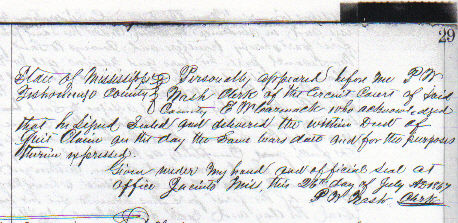 29
State of Mississippi } Personally appeared before me P W
Tishomingo County } Nash Clerk of the Circuit Court of Said
County E McCormack who acknowledged
that he Signed Sealed and delivered the within Deed of
Quit Claim on the day the Same bears date and for the purposes
therein expressed.
Given under My hand and official Seal at
office Jacinto Miss this 26th day of July AD 1867
P W Nash Clerk